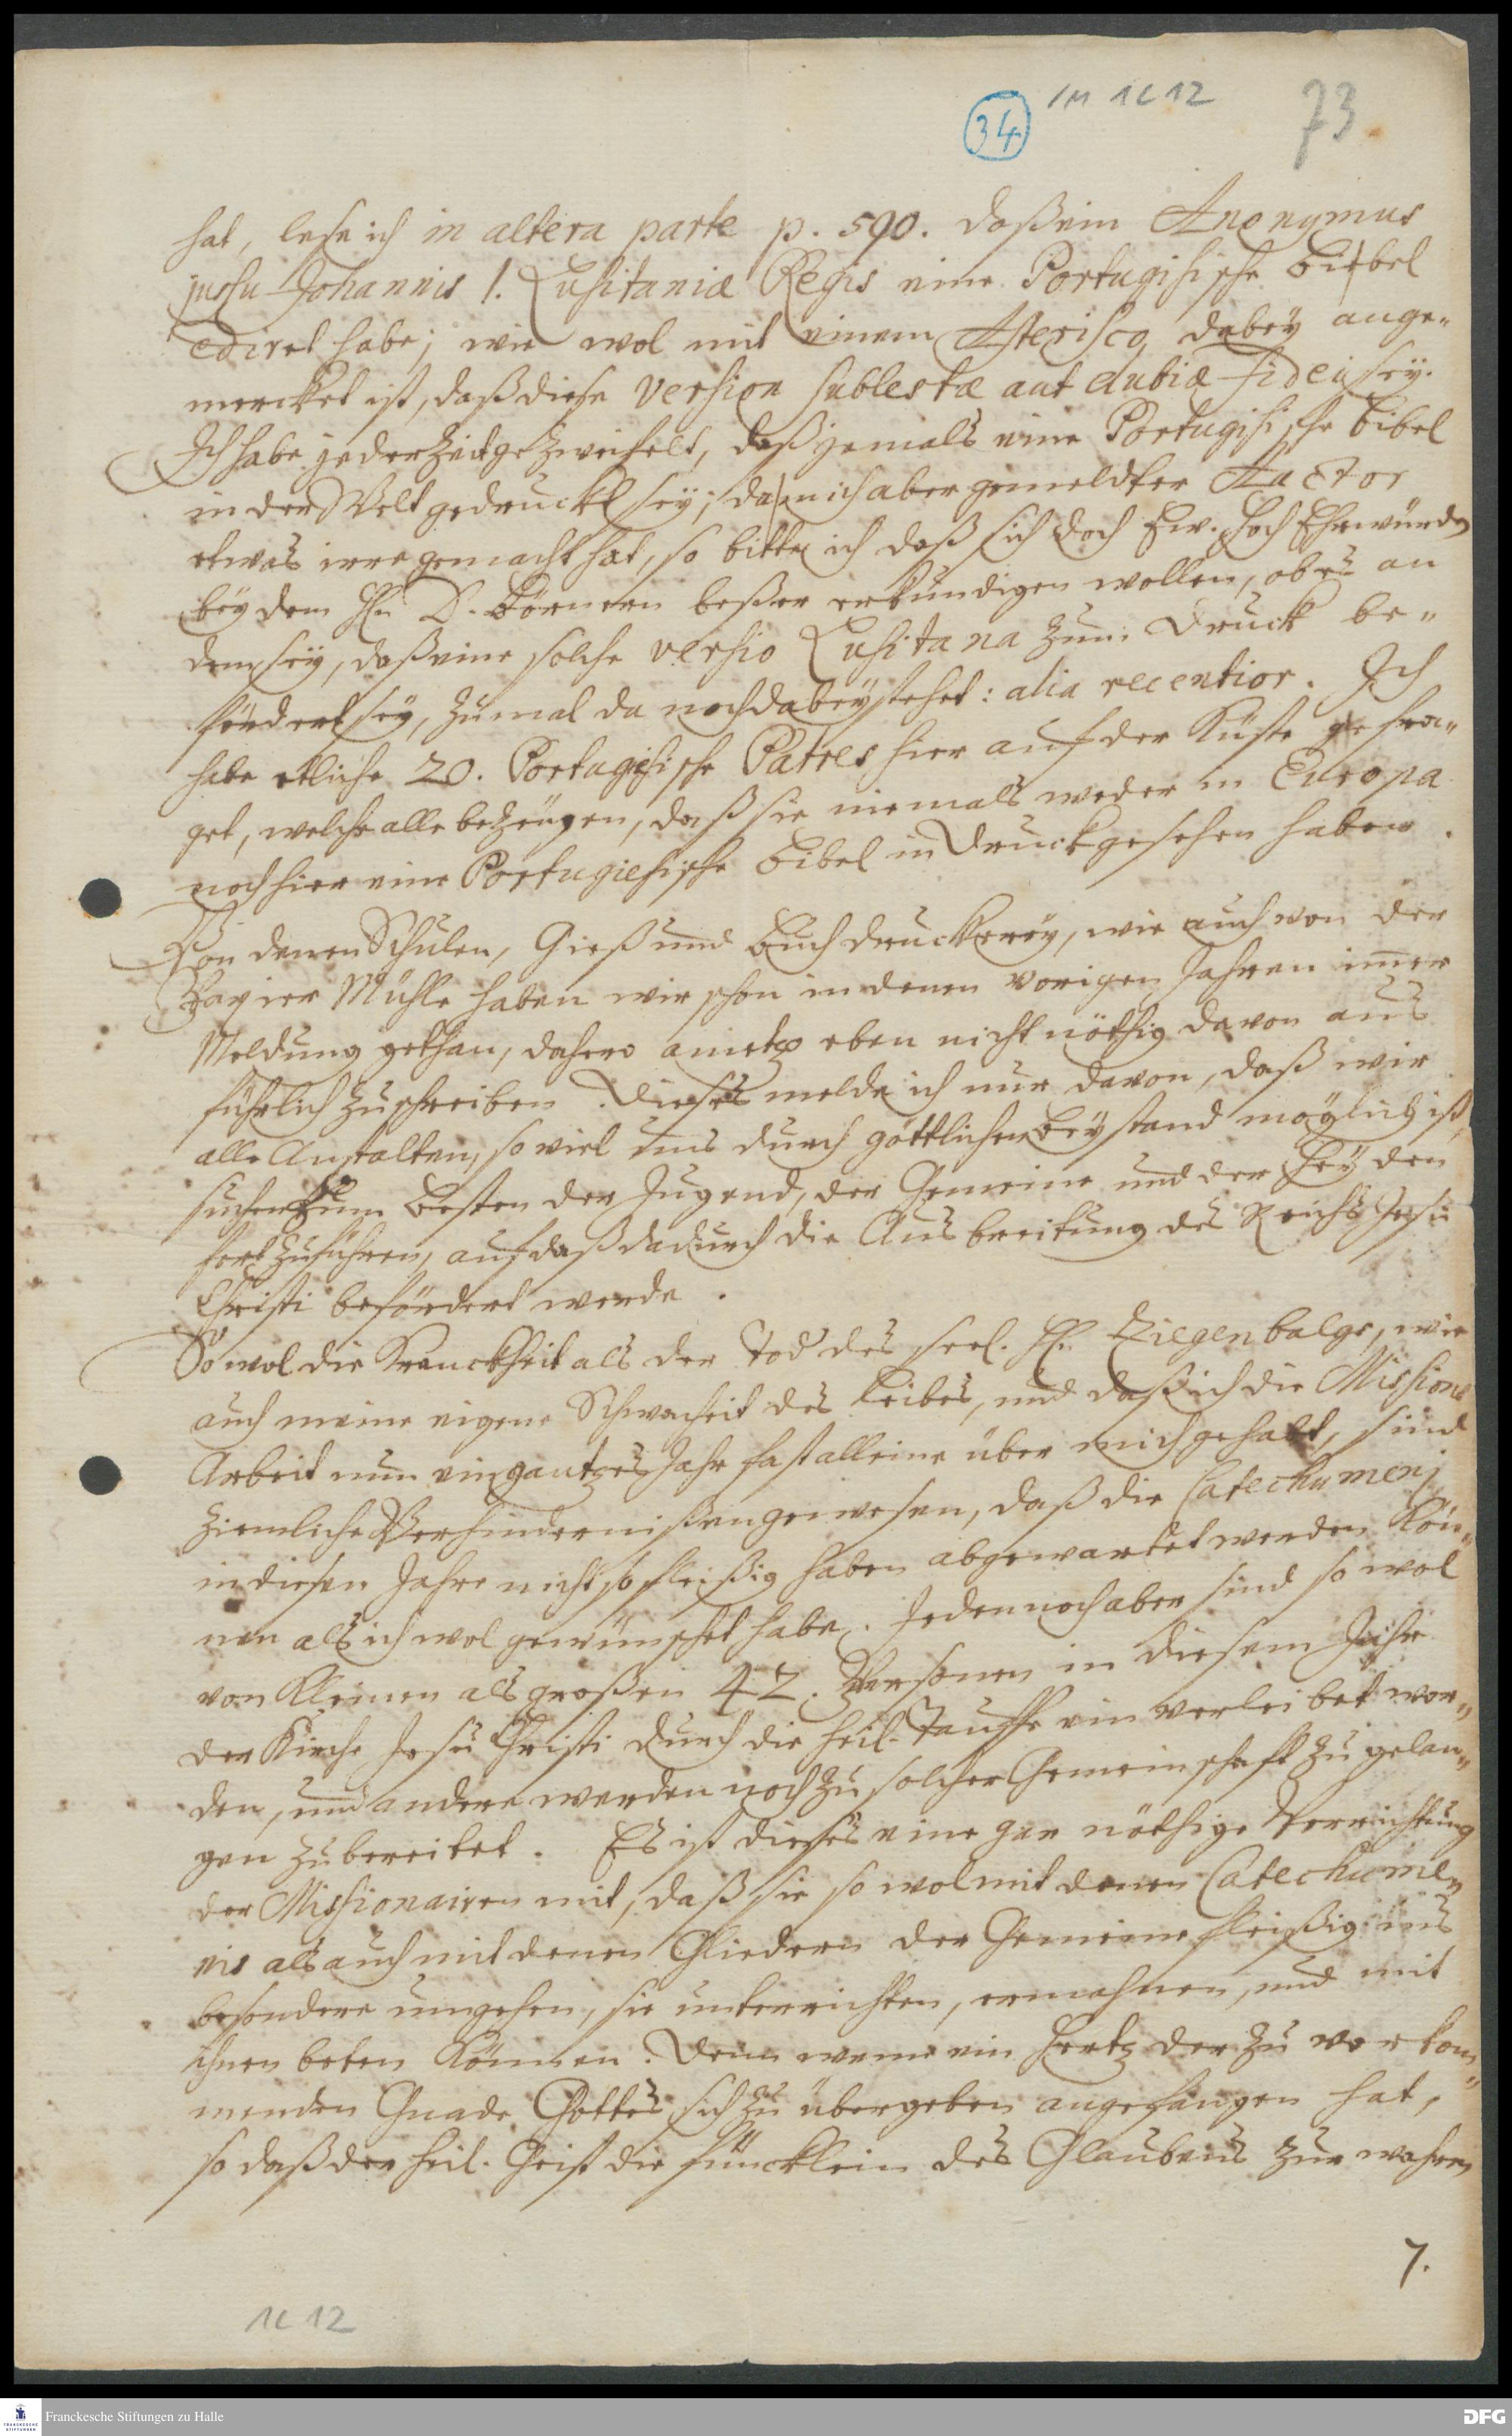 34 1M 1C 12 73
hat, lese ich in altera parte p. 590. daß ein Anonymus
jussu Johannis 1. Lusitaniæ Regis eine Portugisische Bibel
ediret habe; wie wol mit einem Asterisco dabey ange¬
mercket ist, daß diese version sublestæ aut dubiæ fidei sey.
Ich habe jederzeit gezweifelt, daß jemals eine Portugisische Bibel
in der Welt gedruckt sey; da mich aber gemeldter Auctor
etwas irre gemacht hat, so bitte ich daß sich doch Ew. HochEhrwürden
bey dem H. D. Börnern beßer erkundigen wollen, ob es an
dem sey, daß eine solche versio Lusitana zum Druck be¬
fördert sey, zumal da noch dabey stehet: alia recentior. Ich
habe etliche 20. Portugisische Patres hier auf der Küste gefra¬
get, welche alle bezeugen, daß sie niemals weder in Europa
noch hier eine Portugiesische Bibel in Druck gesehen haben.
Von denen Schulen, Gieß und Buchdruckerey, wie auch von der
Papier Mühle haben wir schon in denen vorigen Jahren immer
Meldung gethan, dahero anietzo eben nicht nöthig davon aus
führlich zu schreiben. Dieses melde ich nur davon, daß wir
alle Anstalten, so viel uns durch göttlichen Beystand möglich ist,
suchen zum Besten der Jugend, der Gemeine und der Heyden
fortzuführen, auf daß dadurch die Ausbreitung des Reichs Jesu
Christi befördert werde.
So wol die Kranckheit als der Tod des seel. H. Ziegenbalgs, wie
auch meine eigene Schwachheit des Leibes, und daß ich die Missions
Arbeit nun ein gantzes Jahr fast alleine über mich gehabt, sind
ziemliche Verhinderniße gewesen, daß die Catechumeni
in diesen Jahre nicht so fleißig haben abgewartet werden kön¬
nen als ich wol gewünschet habe. Jedennoch aber sind so wol
von Kleinen als großen 42. Personen in diesem Jahre
der Kirche Jesu Christi durch die heil. Tauffe einverleibet wor¬
den, und andere werden noch zu solcher Gemeinschaft zu gelan¬
gen zubereitet. Es ist dieses eine gar nöthige Verrichtung
der Missionairen mit, daß sie so wol mit denen Catechume¬
nis als auch mit denen Gliedern der Gemeine fleißig ins
besondere umgehen, sie unterrichten, ermahnen, und mit
ihnen beten können. Denn wenn ein Hertz der zuvorkom¬
menden Gnade Gottes sich zu übergeben angefangen hat,
so daß der heil. Geist die füncklein des Glaubens zur wahren
7.
1C 12
Franckesche Stiftungen zu Halle
DFG